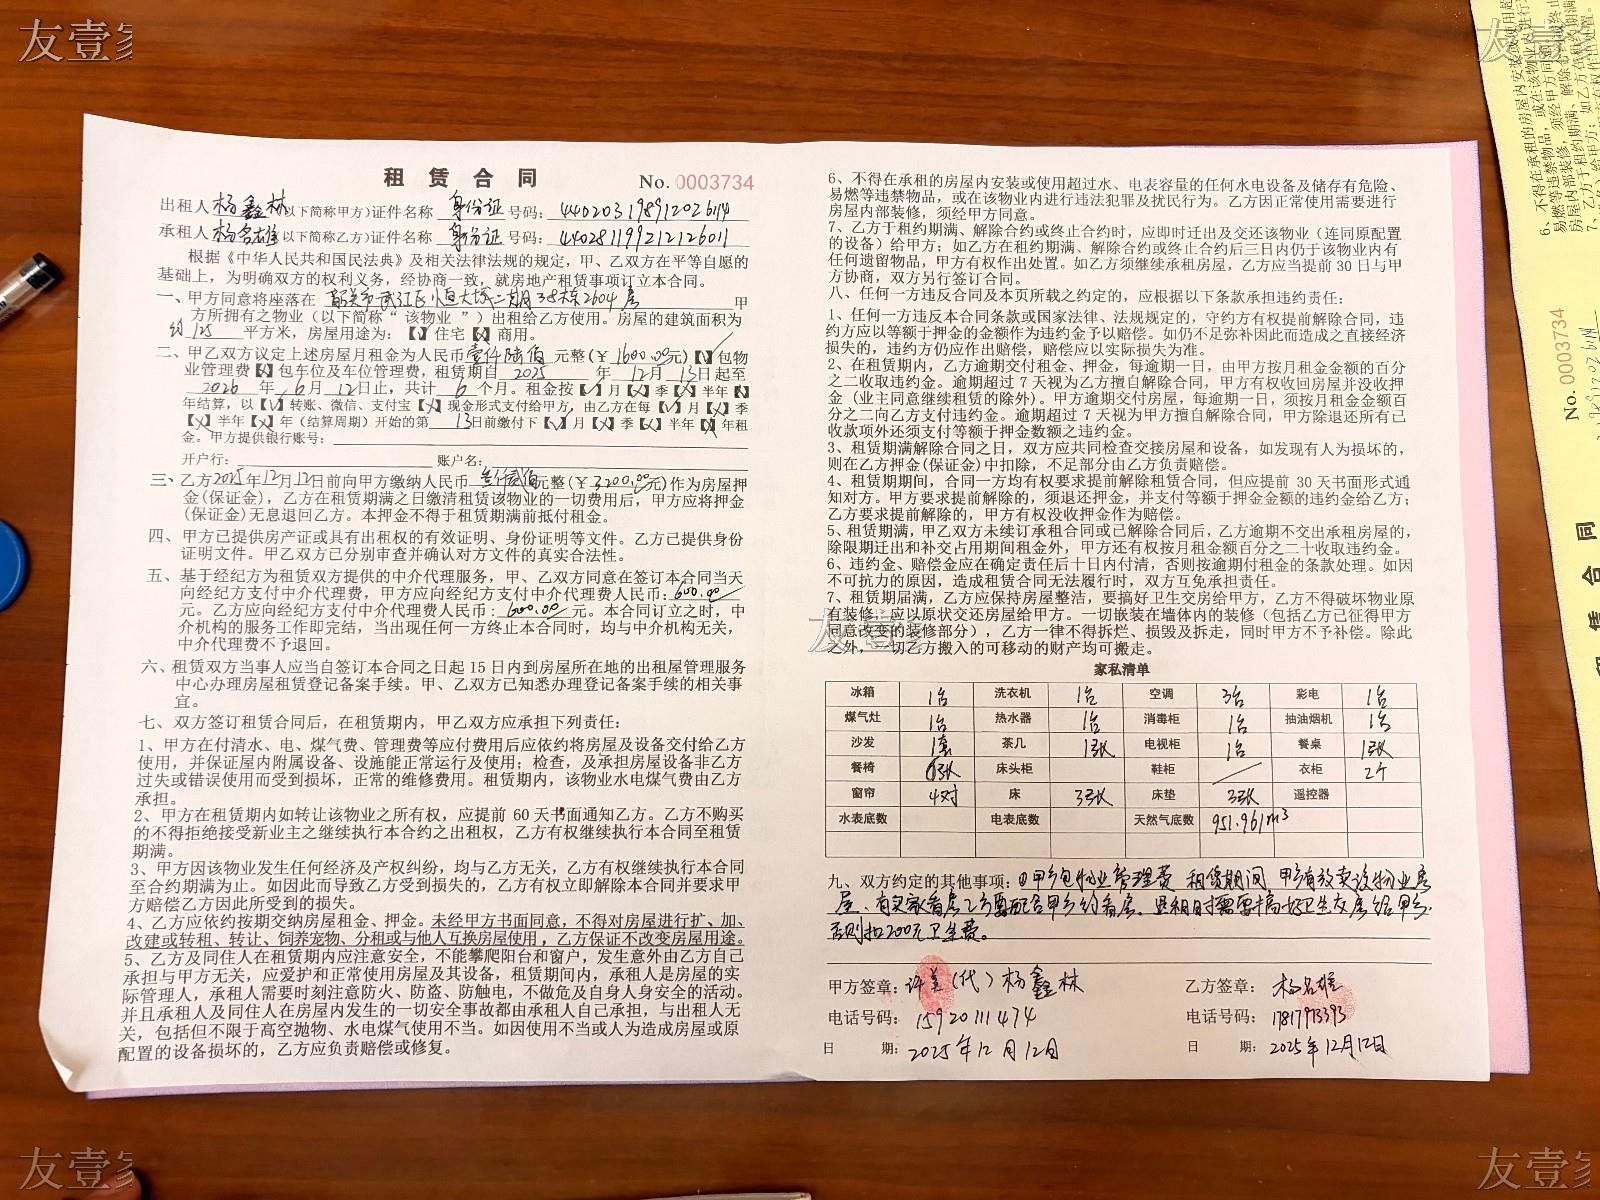 友壹家
租 赁 合 同
No. 0003734
出租人杨鑫林(以下简称甲方)证件名称 身份证 号码: 440203198912026114
承租人杨名雄(以下简称乙方)证件名称 身份证 号码: 440281199212126011
根据《中华人民共和国民法典》及相关法律法规的规定，甲、乙双方在平等自愿的
基础上，为明确双方的权利义务，经协商一致，就房地产租赁事项订立本合同。
一、甲方同意将座落在 韶关市武江区恒大城二期38栋2604房 甲
方所拥有之物业（以下简称“该物业”）出租给乙方使用。房屋的建筑面积为
约 125 平方米，房屋用途为：【√】住宅【×】商用。
二、甲乙双方议定上述房屋月租金为人民币壹仟陆佰 元整(￥1600.00元)【√】包物
业管理费【×】包车位及车位管理费，租赁期自 2025 年 12月 13日起至
2026 年 6月 12日止，共计 6 个月。租金按【√】月【×】季【×】半年【×】
年结算，以【√】转账、微信、支付宝【×】现金形式支付给甲方，由乙方在每【√】月【×】季
【×】半年【×】年（结算周期）开始的第 13日前缴付下【√】月【×】季【×】半年【×】年租
金。甲方提供银行账号：
开户行： 账户名：
三、乙方2025年12月12日前向甲方缴纳人民币 叁仟贰佰元整(￥3200.00元)作为房屋押
金(保证金)，乙方在租赁期满之日缴清租赁该物业的一切费用后，甲方应将押金
(保证金)无息退回乙方。本押金不得于租赁期满前抵付租金。
四、甲方已提供房产证或具有出租权的有效证明、身份证明等文件。乙方已提供身份
证明文件。甲乙双方已分别审查并确认对方文件的真实合法性。
五、基于经纪方为租赁双方提供的中介代理服务，甲、乙双方同意在签订本合同当天
向经纪方支付中介代理费，甲方应向经纪方支付中介代理费人民币：600.00
元。乙方应向经纪方支付中介代理费人民币：600.00 元。本合同订立之时，中
介机构的服务工作即完结，当出现任何一方终止本合同时，均与中介机构无关，
中介代理费不予退回。
六、租赁双方当事人应当自签订本合同之日起 15 日内到房屋所在地的出租屋管理服务
中心办理房屋租赁登记备案手续。甲、乙双方已知悉办理登记备案手续的相关事
宜。
七、双方签订租赁合同后，在租赁期内，甲乙双方应承担下列责任：
1、甲方在付清水、电、煤气费、管理费等应付费用后应依约将房屋及设备交付给乙方
使用，并保证屋内附属设备、设施能正常运行及使用；检查，及承担房屋设备非乙方
过失或错误使用而受到损坏，正常的维修费用。租赁期内，该物业水电煤气费由乙方
承担。
2、甲方在租赁期内如转让该物业之所有权，应提前 60 天书面通知乙方。乙方不购买
的不得拒绝接受新业主之继续执行本合约之出租权，乙方有权继续执行本合同至租赁
期满。
3、甲方因该物业发生任何经济及产权纠纷，均与乙方无关，乙方有权继续执行本合同
至合约期满为止。如因此而导致乙方受到损失的，乙方有权立即解除本合同并要求甲
方赔偿乙方因此所受到的损失。
4、乙方应依约按期交纳房屋租金、押金。未经甲方书面同意，不得对房屋进行扩、加、
改建或转租、转让、饲养宠物、分租或与他人互换房屋使用，乙方保证不改变房屋用途。
5、乙方及同住人在租赁期内应注意安全，不能攀爬阳台和窗户，发生意外由乙方自己
承担与甲方无关，应爱护和正常使用房屋及其设备，租赁期间内，承租人是房屋的实
际管理人，承租人需要时刻注意防火、防盗、防触电，不做危及自身人身安全的活动。
并且承租人及同住人在房屋内发生的一切安全事故都由承租人自己承担，与出租人无
关，包括但不限于高空抛物、水电煤气使用不当。如因使用不当或人为造成房屋或原
配置的设备损坏的，乙方应负责赔偿或修复。
6、不得在承租的房屋内安装或使用超过水、电表容量的任何水电设备及储存有危险、
易燃等违禁物品，或在该物业内进行违法犯罪及扰民行为。乙方因正常使用需要进行
房屋内部装修，须经甲方同意。
7、乙方于租约期满、解除合约或终止合约时，应即时迁出及交还该物业（连同原配置
的设备）给甲方；如乙方在租约期满、解除合约或终止合约后三日内仍于该物业内有
任何遗留物品，甲方有权作出处置。如乙方须继续承租房屋，乙方应当提前 30 日与甲
方协商，双方另行签订合同。
八、任何一方违反合同及本页所载之约定的，应根据以下条款承担违约责任：
1、任何一方违反本合同条款或国家法律、法规规定的，守约方有权提前解除合同，违
约方应以等额于押金的金额作为违约金予以赔偿。如仍不足弥补因此而造成之直接经济
损失的，违约方仍应作出赔偿，赔偿应以实际损失为准。
2、在租赁期内，乙方逾期交付租金、押金，每逾期一日，由甲方按月租金金额的百分
之二收取违约金。逾期超过 7 天视为乙方擅自解除合同，甲方有权收回房屋并没收押
金（业主同意继续租赁的除外）。甲方逾期交付房屋，每逾期一日，须按月租金金额百
分之二向乙方支付违约金。逾期超过 7 天视为甲方擅自解除合同，甲方除退还所有已
收款项外还须支付等额于押金数额之违约金。
3、租赁期满解除合同之日，双方应共同检查交接房屋和设备，如发现有人为损坏的，
则在乙方押金(保证金)中扣除，不足部分由乙方负责赔偿。
4、租赁期期间，合同一方均有权要求提前解除租赁合同，但应提前 30 天书面形式通
知对方。甲方要求提前解除的，须退还押金，并支付等额于押金金额的违约金给乙方；
乙方要求提前解除的，甲方有权没收押金作为赔偿。
5、租赁期满，甲乙双方未续订承租合同或已解除合同后，乙方逾期不交出承租房屋的，
除限期迁出和补交占用期间租金外，甲方还有权按月租金额百分之二十收取违约金。
6、违约金、赔偿金应在确定责任后十日内付清，否则按逾期付租金的条款处理。如因
不可抗力的原因，造成租赁合同无法履行时，双方互免承担责任。
7、租赁期届满，乙方应保持房屋整洁，要搞好卫生交房给甲方，乙方不得破坏物业原
有装修，应以原状交还房屋给甲方。一切嵌装在墙体内的装修（包括乙方已征得甲方
同意改变的装修部分），乙方一律不得拆烂、损毁及拆走，同时甲方不予补偿。除此
之外，一切乙方搬入的可移动的财产均可搬走。
家私清单
冰箱 1台 洗衣机 1台 空调 3台 彩电 1台
煤气灶 1台 热水器 1台 消毒柜 1台 抽油烟机 1台
沙发 1套 茶几 1张 电视柜 1台 餐桌 1张
餐椅 6张 床头柜 鞋柜 衣柜 2个
窗帘 4对 床 3张 床垫 3张 遥控器
水表底数 电表底数 天然气底数 951.961m³
九、双方约定的其他事项：①甲方包物业管理费 租赁期间 甲方有放卖该物业房
屋、有买家看房乙方要配合甲方约看房。退租时需要搞好卫生交房给甲方，
否则扣200元卫生费。
甲方签章：许美（代）杨鑫林
乙方签章：杨名雄
电话号码：15920111474
电话号码：17817973393
日 期：2025年12月12日
日 期：2025年12月12日
友壹家
No. 0003734
租 赁 合 同
友壹家
友壹家
友壹家